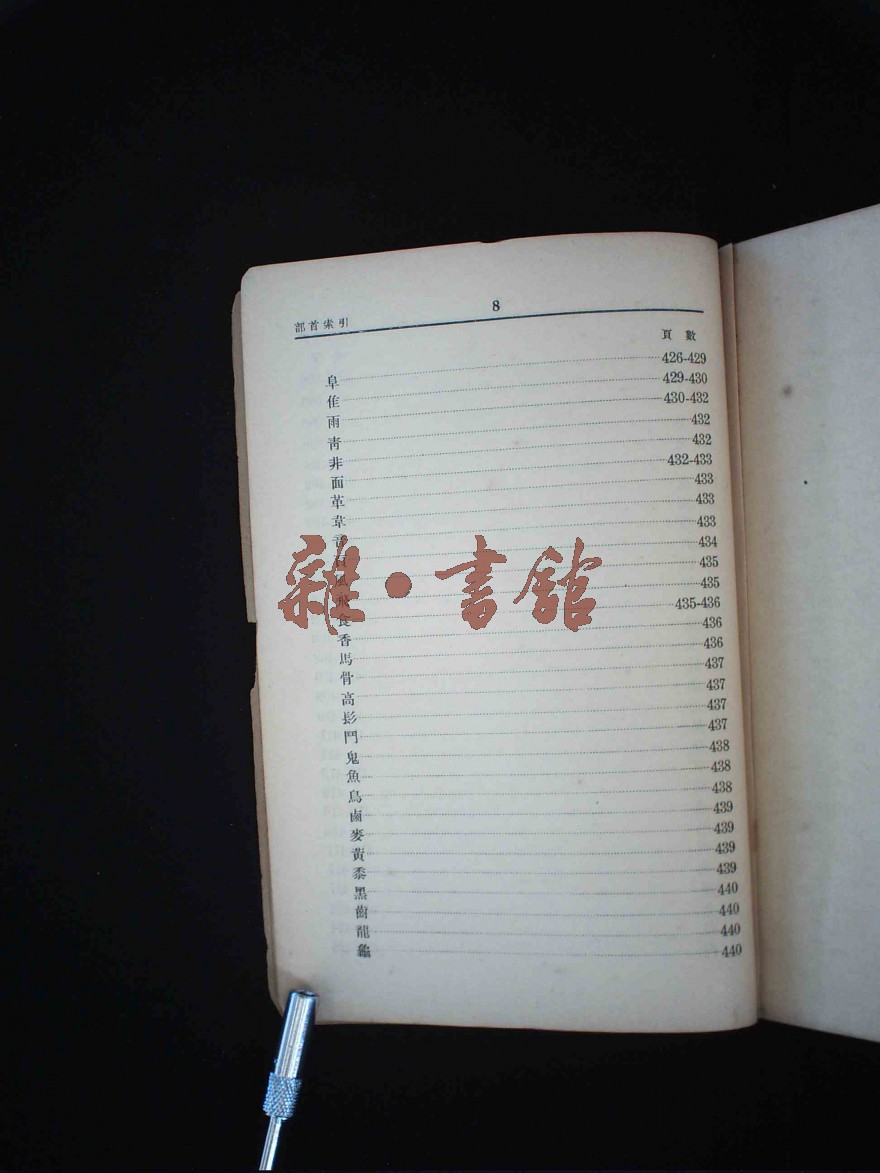 8
部首索引
頁數
阜 426-429
隹 429-430
雨 430-432
靑 432
非 432
面 432-433
革 433
韋 433
音 433
頁 434
風 435
飛 435
食 435-436
香 436
馬 436
骨 437
高 437
髟 437
鬥 437
鬼 438
魚 438
鳥 438
鹵 439
麥 439
黃 439
黍 439
黑 440
齒 440
龍 440
龜 440
雜·書館